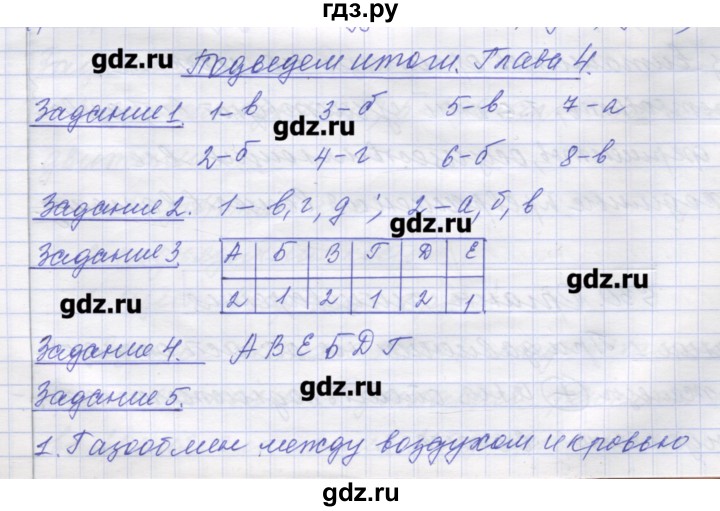 гдз.ру
Подведем итоги. Глава 4.
Задание 1. 1-в 3-б 5-в 7-а
2-б 4-г 6-б 8-в
Задание 2. 1-в, г, д; 2-а, б, в
Задание 3 А Б В Г Д Е
2 1 2 1 2 1
Задание 4. А В Е Б Д Г
Задание 5.
1. Газообмен между воздухом и кровью
gdz.ru
gdz.ru
gdz.ru
gdz.ru
gdz.ru
gdz.ru
gdz.ru